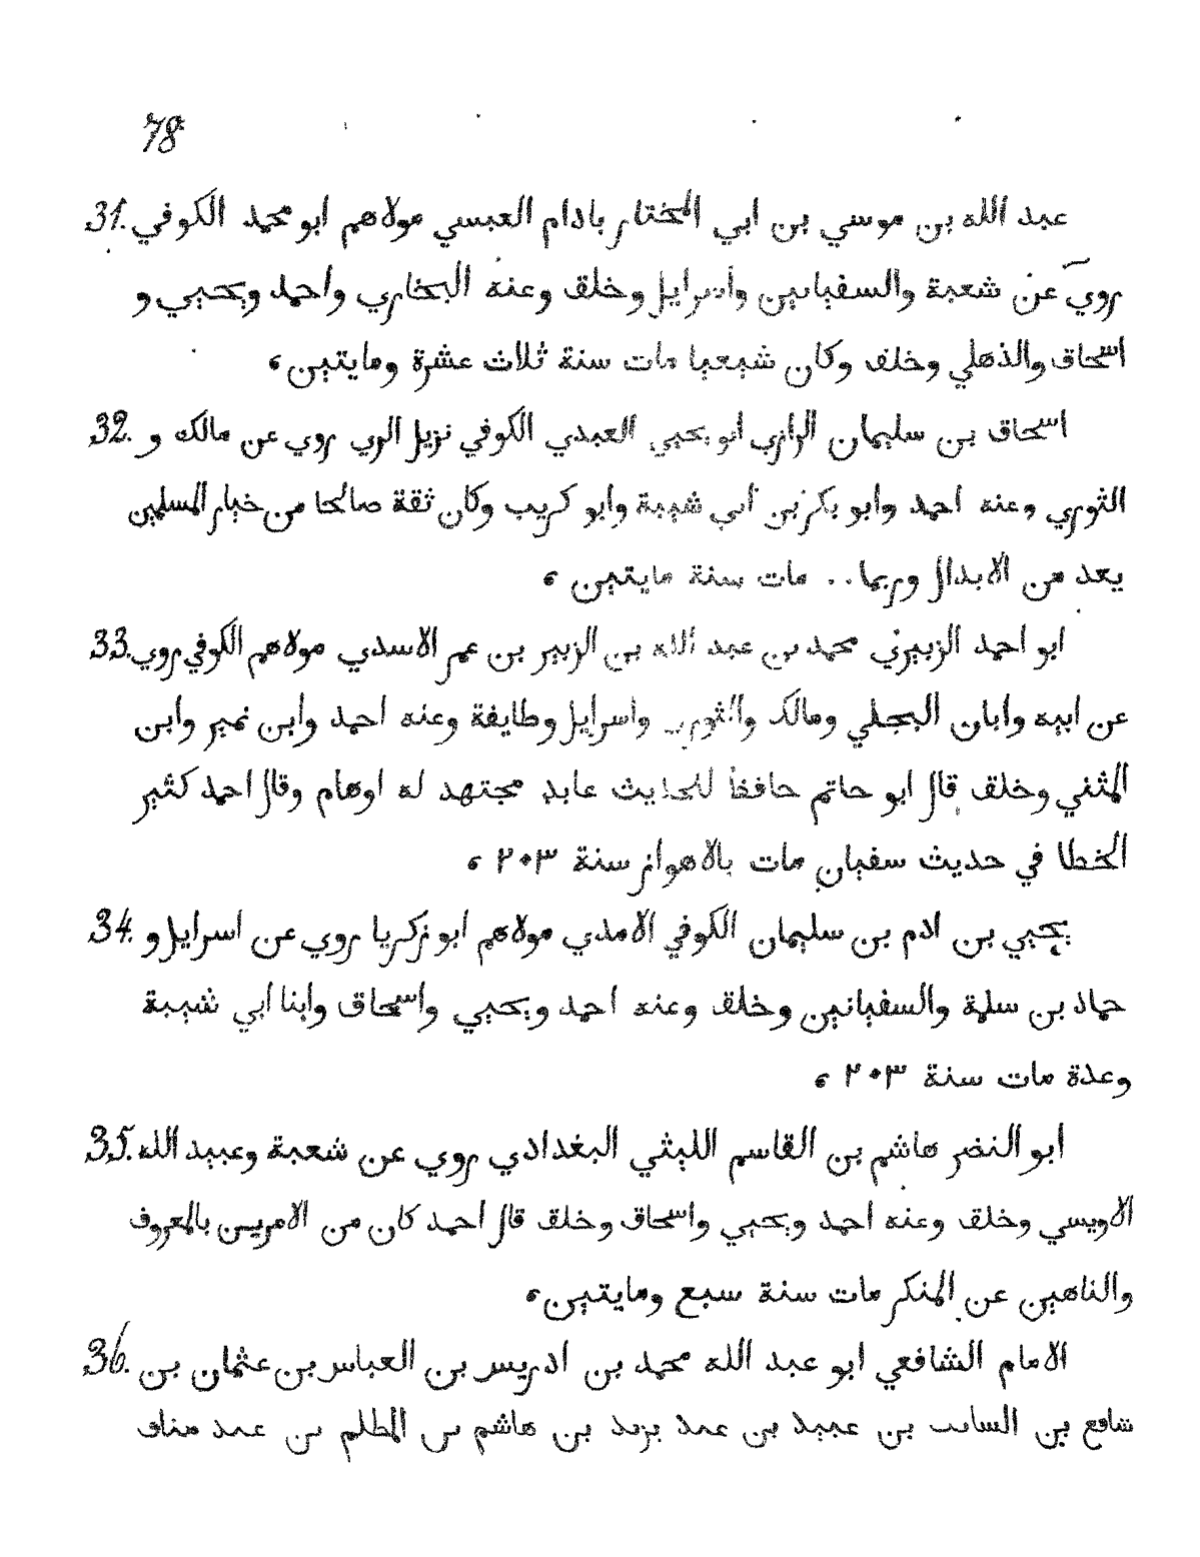 78
31. عبد الله بن موسي بن ابي المختار بادام العبسي مولاهم ابو محمد الكوفي
روي عن شعبة والسفيانين واسرايل وخلق وعنه البخاري واحمد ويحيي و
اسحاق والذهلي وخلق وكان شيعيا مات سنة ثلاث عشرة ومايتين ،
32. اسحاق بن سليمان الرازي ابو يحيي العبدي الكوفي نزيل الري روي عن مالك و
الثوري وعنه احمد وابو بكر بن ابي شيبة وابو كريب وكان ثقة صالحا من خيار المسلمين
يعد من الابدال وربما .. مات سنة مايتين ،
33. ابو احمد الزبيري محمد بن عبد الله بن الزبير بن عمر الاسدي مولاهم الكوفي روي
عن ابيه وابان البجلي ومالك والثوري واسرايل وطايفة وعنه احمد وابن نمير وابن
المثني وخلق قال ابو حاتم حافظا للحديث عابد مجتهد له اوهام وقال احمد كثير
الخطا في حديث سفيان مات بالاهواز سنة ٢٠٣ ،
34. يحيي بن ادم بن سليمان الكوفي الامدي مولاهم ابو زكريا روي عن اسرايل و
حماد بن سلمة والسفيانين وخلق وعنه احمد ويحيي واسحاق وابنا ابي شيبة
وعدة مات سنة ٢٠٣ ،
35. ابو النضر هاشم بن القاسم الليثي البغدادي روي عن شعبة وعبيد الله
الاويسي وخلق وعنه احمد ويحيي واسحاق وخلق قال احمد كان من الامرين بالمعروف
والناهين عن المنكر مات سنة سبع ومايتين ،
36. الامام الشافعي ابو عبد الله محمد بن ادريس بن العباس بن عثمان بن
شافع بن السايب بن عبيد بن عبد يزيد بن هاشم بن المطلم بن عبد مناف